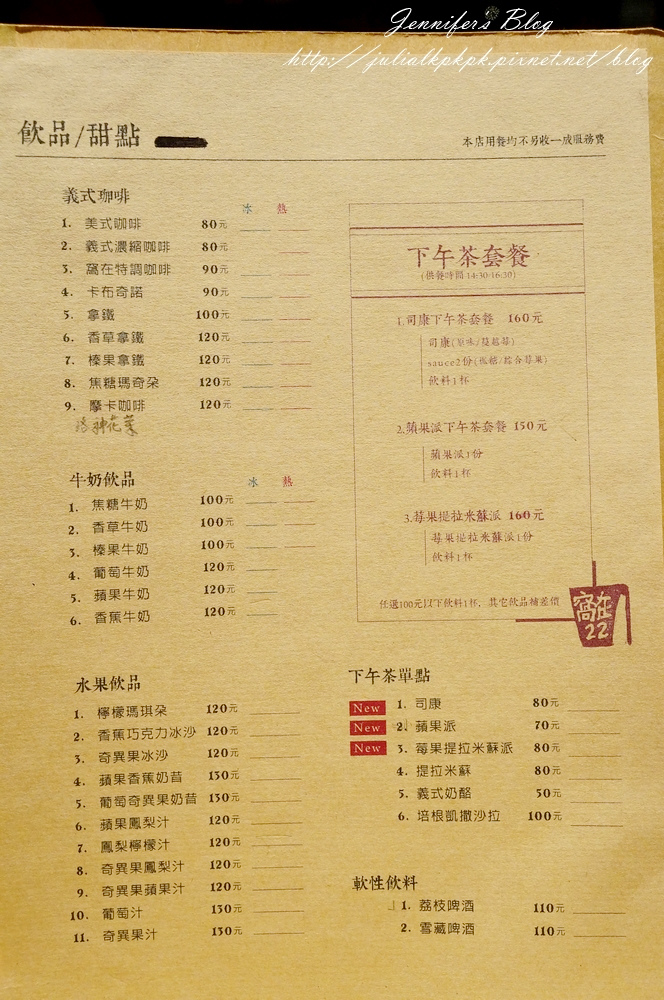 Jennifer's Blog
http://julialkpkpk.pixnet.net/blog
飲品/甜點
本店用餐均不另收一成服務費
義式咖啡
冰 熱
1. 美式咖啡 80元
2. 義式濃縮咖啡 80元
3. 窩在特調咖啡 90元
4. 卡布奇諾 90元
5. 拿鐵 100元
6. 香草拿鐵 120元
7. 榛果拿鐵 120元
8. 焦糖瑪奇朵 120元
9. 摩卡咖啡 120元
牛奶飲品
冰 熱
1. 焦糖牛奶 100元
2. 香草牛奶 100元
3. 榛果牛奶 100元
4. 葡萄牛奶 120元
5. 蘋果牛奶 120元
6. 香蕉牛奶 120元
水果飲品
1. 檸檬瑪琪朵 120元
2. 香蕉巧克力冰沙 120元
3. 奇異果冰沙 120元
4. 蘋果香蕉奶昔 130元
5. 葡萄奇異果奶昔 130元
6. 蘋果鳳梨汁 120元
7. 鳳梨檸檬汁 120元
8. 奇異果鳳梨汁 120元
9. 奇異果蘋果汁 120元
10. 葡萄汁 130元
11. 奇異果汁 130元
下午茶套餐
(供餐時間 14:30-16:30)
1.司康下午茶套餐 160元
司康(原味/蔓越莓)
sauce2份(楓糖/綜合莓果)
飲料1杯
2.蘋果派下午茶套餐 150元
蘋果派1份
飲料1杯
3.莓果提拉米蘇派 160元
莓果提拉米蘇派1份
飲料1杯
任選100元以下飲料1杯，其它飲品補差價
窩在
22
下午茶單點
New 1. 司康 80元
New 2. 蘋果派 70元
New 3. 莓果提拉米蘇派 80元
4. 提拉米蘇 80元
5. 義式奶酪 50元
6. 培根凱撒沙拉 100元
軟性飲料
1. 荔枝啤酒 110元
2. 雪藏啤酒 110元